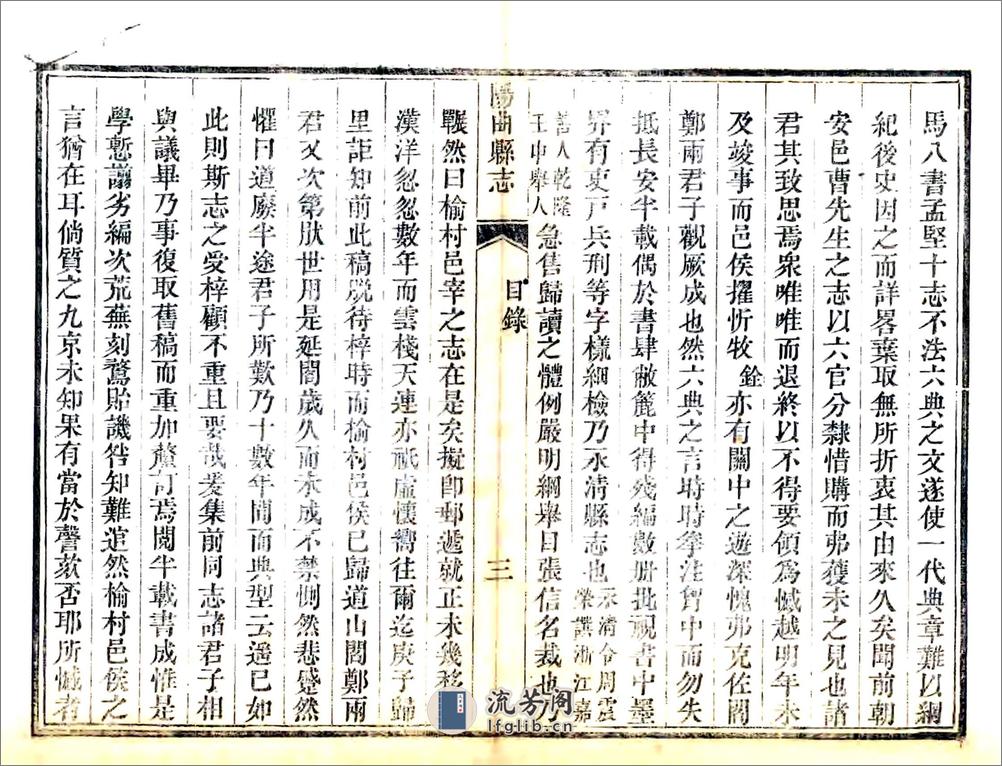 馬八書孟堅十志不法六典之文遂使一代典章難以綱
紀後史因之而詳畧棄取無所折衷其由來久矣聞前朝
安邑曹先生之志以六官分隸惜購而弗獲未之見也諸
君其致思焉衆唯唯而退終以不得要領爲憾越明年未
及竣事而邑侯擢忻牧銓亦有關中之遊深愧弗克佐閻
鄭兩君子觀厥成也然六典之言時時拳注胷中而勿失
抵長安半載偶於書肆敝簏中得殘編數册批視書中墨
界有吏戸兵刑等字樣細檢乃永清縣志也永清令周震
榮譔浙江嘉
善人乾隆
壬申舉人急售歸讀之體例嚴明綱舉目張信名裁也乃
囅然曰榆村邑宰之志在是矣擬卽郵遞就正未幾移
漢洋忽忽數年而雲棧天連亦祇虛懷嚮往爾迄庚子歸
里詎知前此稿脫待梓時而榆村邑侯已歸道山閻鄭兩
君又次第肰世用是延閣歲久而未成不禁惻然悲蹙然
懼曰道廢半途君子所歎乃十數年間而典型云邈已如
此則斯志之爰梓顧不重且要哉爰集前同志諸君子相
與議畢乃事復取舊稿而重加釐訂焉閱半載書成惟是
學慙譾劣編次荒蕪刻鶩貽譏咎知難逭然榆村邑侯之
言猶在耳倘質之九京未知果有當於謦欬否耶所憾者
陽曲縣志
目錄
三
流芳阁
lfglib.cn